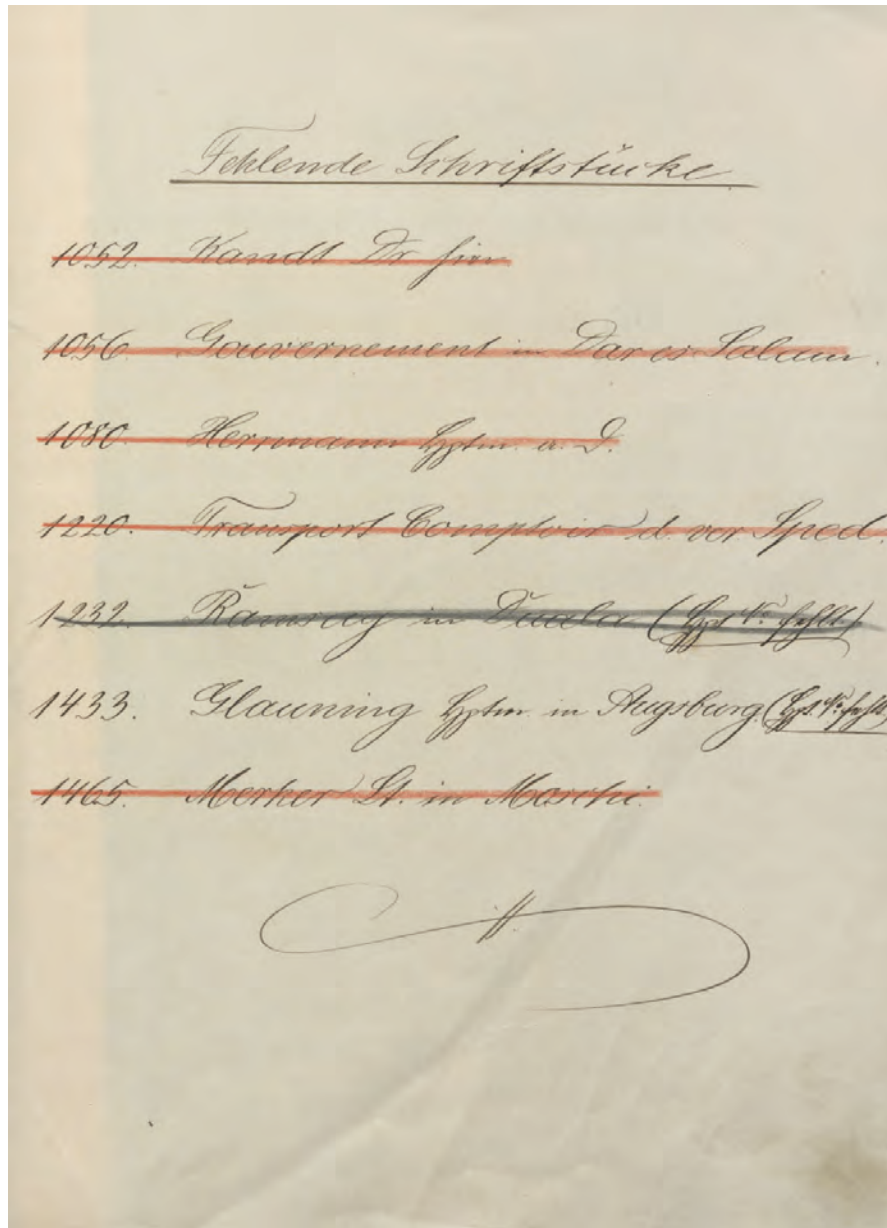 Fehlende Schriftstücke.
1052. Kandt Dr hier
1056 Gouvernement in Dar es Salam.
1080. Herrmann Hptm. a. D.
1220. Transport Comptoir d. ver Sped.
1232. Ramsay in Duala ( № fehlt)
1433. Glauning Hptm. in Augsburg. ( № fehlt)
1465. Merker Lt. in Moschi.